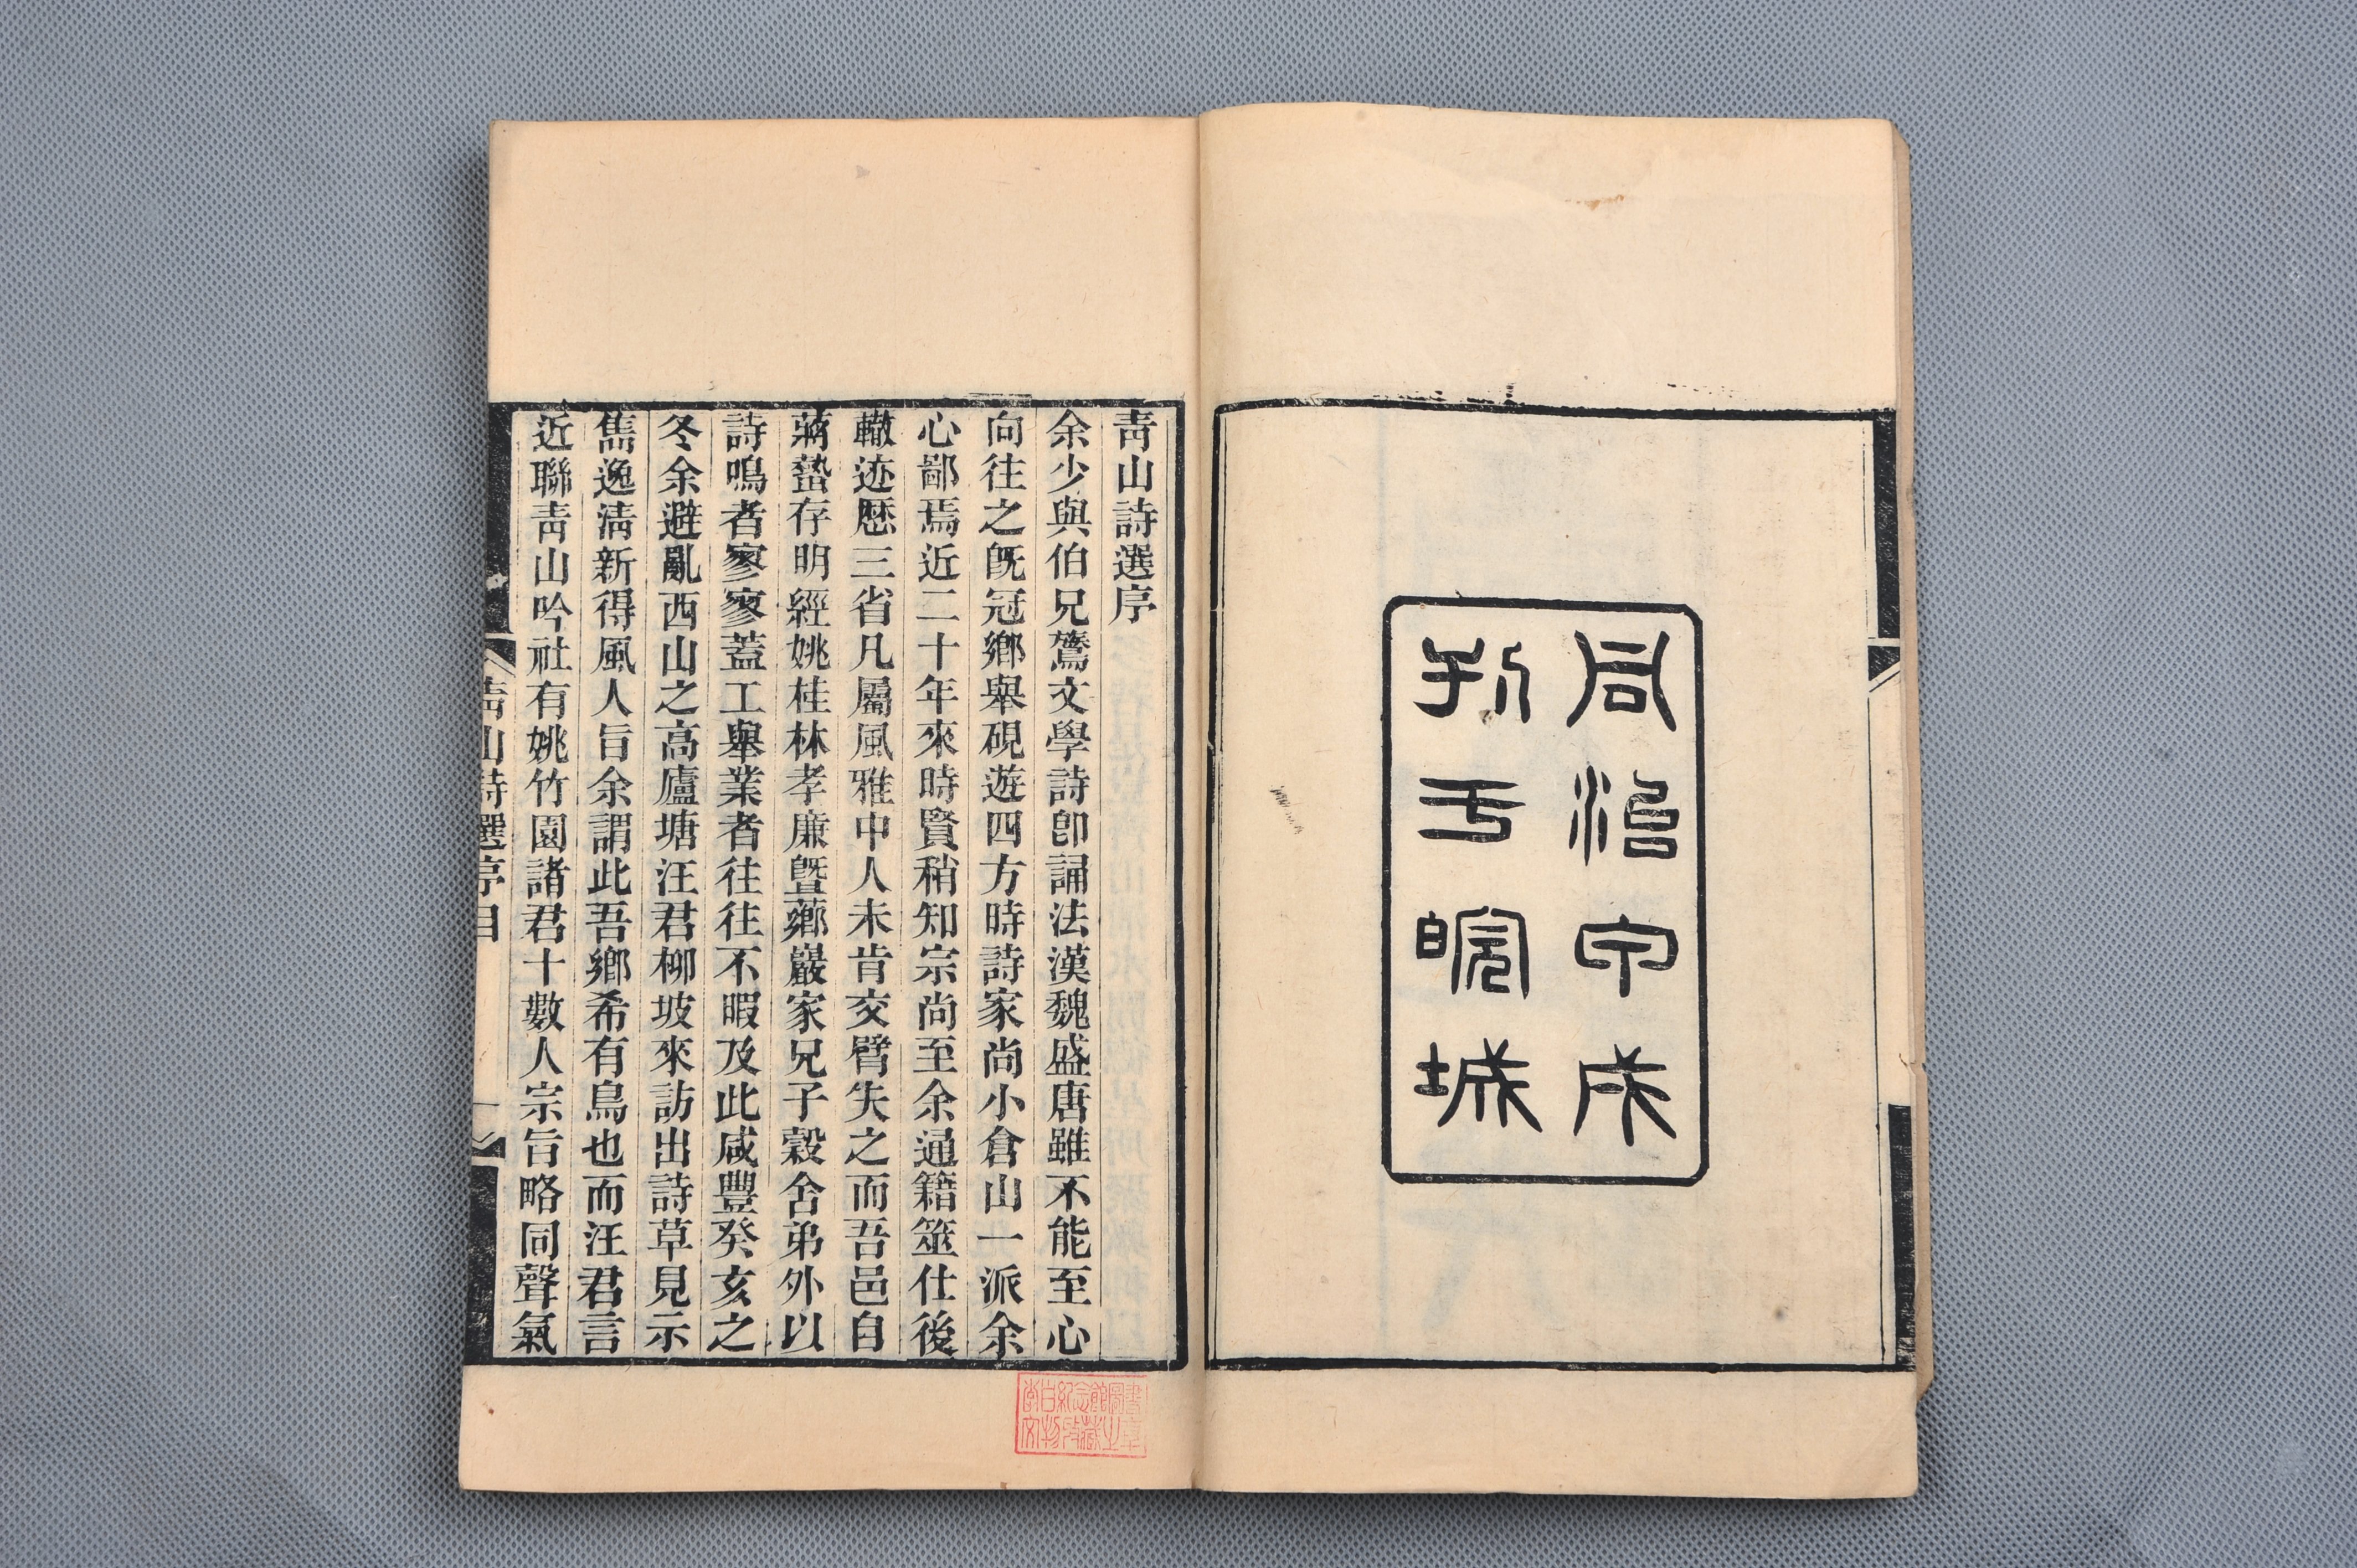 同治甲戌
刊于皖城
靑山詩選序
余少與伯兄鷟文學詩卽誦法漢魏盛唐雖不能至心
向往之旣冠鄉舉硯遊四方時詩家尚小倉山一派余
心鄙焉近二十年來時賢稍知宗尚至余通籍筮仕後
轍迹歷三省凡屬風雅中人未肯交臂失之而吾邑自
蔣蟄存明經姚桂林孝廉曁薌巖家兄子穀舍弟外以
詩鳴者寥寥蓋工舉業者往往不暇及此咸豐癸亥之
冬余避亂西山之高廬塘汪君柳坡來訪出詩草見示
雋逸淸新得風人旨余謂此吾鄉希有鳥也而汪君言
近聯靑山吟社有姚竹園諸君十數人宗旨略同聲氣
靑山詩選序目 一
李白紀念館圖書
文物收藏之章